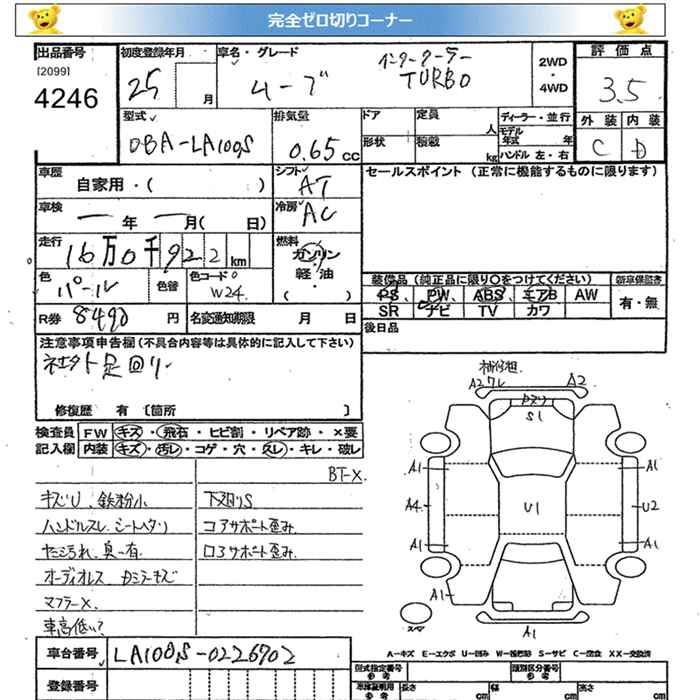 完全ゼロ切りコーナー
出品番号
[2099]
4246
初度登録年月
25 月
車名・グレード
ムーブ
インタークーラー
TURBO
2WD
・
4WD
評価点
3.5
外装 内装
C D
型式
DBA-LA100S
排気量
0.65 cc
ドア
形状
定員 人
積載 kg
ディーラー・並行
モデル年式 年
ハンドル 左・右
車歴
自家用・( )
シフト
AT
セールスポイント (正常に機能するものに限ります)
車検
一 年 一 月( 日)
冷房
AC
走行
16万0千922km
燃料
ガソリン
軽・油
( )
色
パール
色替
色コードNo
W24
装備品(純正品に限り○をつけてください)
新車保証書
PS PW ABS エアB AW
SR ナビ TV カワ
有・無
R券 8490 円
名変通知期限 月 日
後日品
注意事項申告欄(不具合内容等は具体的に記入して下さい)
社外足回り
修復歴 有 〔箇所 〕
検査員記入欄
FW キズ・飛石・ヒビ割・リペア跡・×要
内装 キズ・汚レ・コゲ・穴・スレ・キレ・破レ
BT-X
キズU 鉄粉小
ハンドルスレ シートヘタリ
オーディオレス
マフラーX
車高低い?
下廻りS
コアサポート歪み
ロアサポート歪み
補修跡
A2 ワレ
A2
S1
A1
A1
A4
U1
U2
A1
A1
A1
スペア
A1
A=キズ E=エクボ U=凹み W=補修跡 S=サビ C=腐食 XX=交換済
車台番号
LA100S-0226702
登録番号
型式指定番号
参考
類別区分番号
参考
車庫証明用
参考
長さ cm
幅 cm
高さ cm